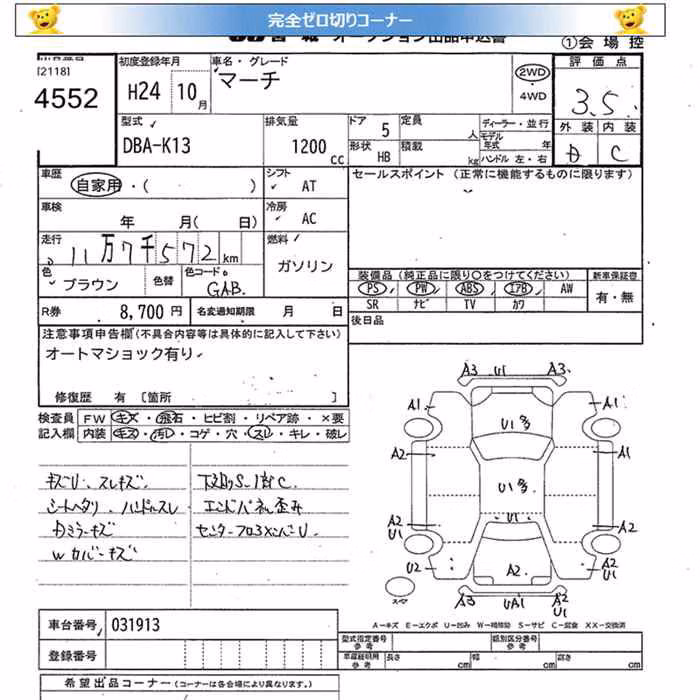 完全ゼロ切りコーナー
①会場控
[2118]
4552
初度登録年月
H24 10月
車名・グレード
マーチ
2WD
・
4WD
評価点
3.5
型式
DBA-K13
排気量
1200 cc
ドア 5
定員 人
形状 HB
積載 kg
ディーラー・並行
モデル年式 年
ハンドル 左・右
外装 内装
D C
車歴
自家用・( )
シフト
AT
セールスポイント (正常に機能するものに限ります)
車検
年 月( 日)
冷房
AC
走行
11万7千572 km
燃料
ガソリン
色
ブラウン
色替
色コード
GAB.
装備品(純正品に限り○をつけてください)
新車保証書
PS PW ABS エアB AW
有・無
SR ナビ TV カワ
R券 8,700 円
名変通知期限 月 日
後日品
注意事項申告欄(不具合内容等は具体的に記入して下さい)
オートマショック有り
修復歴 有 [箇所 ]
検査員 FW キズ・飛石・ヒビ割・リペア跡・×要
記入欄 内装 キズ・汚レ・コゲ・穴・スレ・キレ・破レ
キズU、スレキズ
シートヘタリ、ハンドルスレ
Dミラーキズ
Wカバーキズ
下廻りS・1部C
エンドパネル歪み
A3 U1 A3
A1 U1多 A1
A2 A1
U1多
A2 U1 U1 A2
U2 A2 A2 U1
スペア
A3 UA1 A2 U1
A−キズ E−エクボ U−凹み W−補修跡 S−サビ C−腐食 XX−交換済
車台番号 031913
登録番号
型式指定番号 参考
類別区分番号 参考
車庫証明用 参考 長さ cm 幅 cm 高さ cm
希望出品コーナー(コーナーは各会場により異なります。)